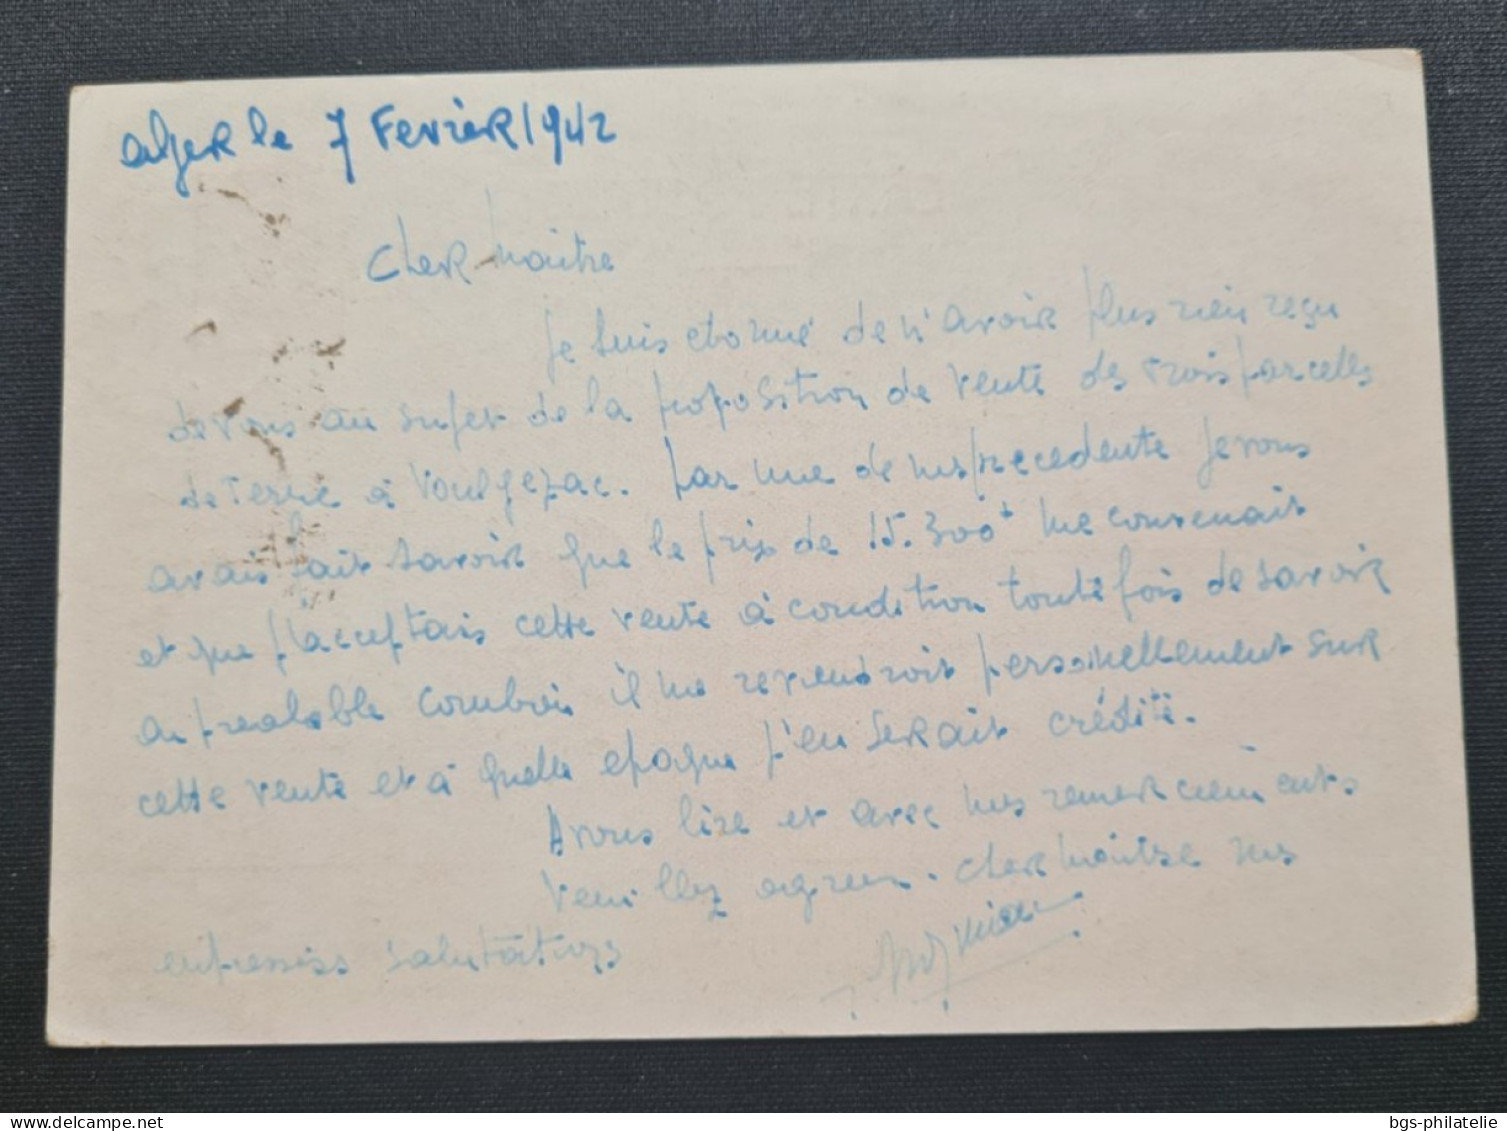 Alger le 7 Fevrier 1942
Cher Maitre
Je suis etonné de n'avoir plus rien reçu
de vous au sujet de la proposition de vente des trois parcelles
de Terre à Voulgezac. Par une de mes precedente je vous
avais fait savoir que le prix de 15.300 me convenait
et que j'acceptais cette vente à condition toutefois de savoir
au prealable combien il me reviendroit personnellement sur
cette vente et à quelle epoque j'en serait crédité.
A vous lire et avec mes remerciements
veuillez agreer. Cher Maitre mes
empressés salutations
bgs-philatelie